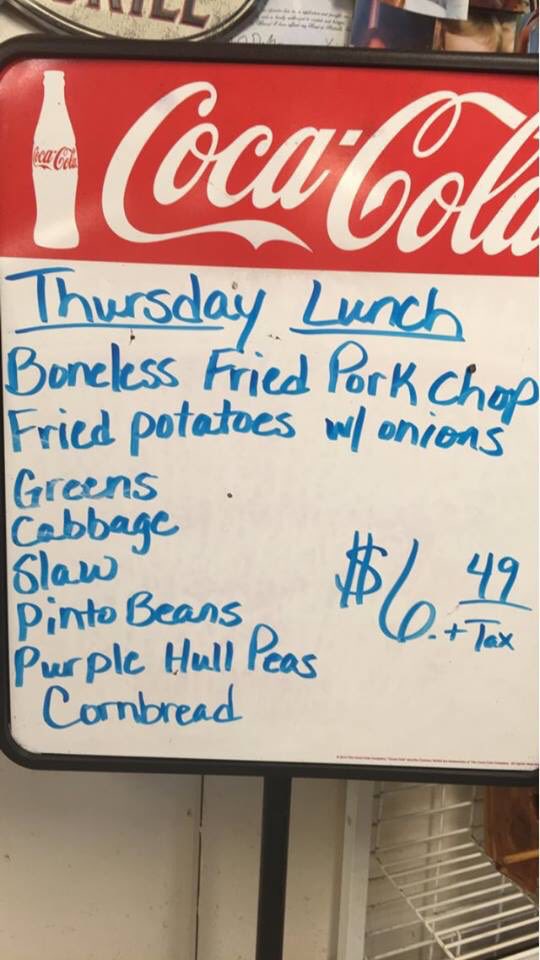 RILL
Coca-Cola
Coca-Cola
Thursday Lunch
Boneless Fried Pork Chop
Fried potatoes w/ onions
Greens
Cabbage
Slaw
Pinto Beans
Purple Hull Peas
Cornbread
$6.49
+ Tax